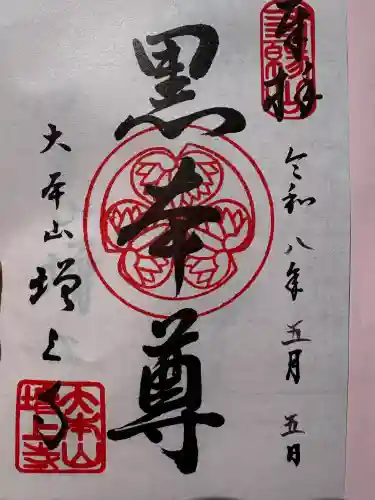 奉拝
令和八年五月五日
黒本尊
大本山増上寺
大本山
増上寺